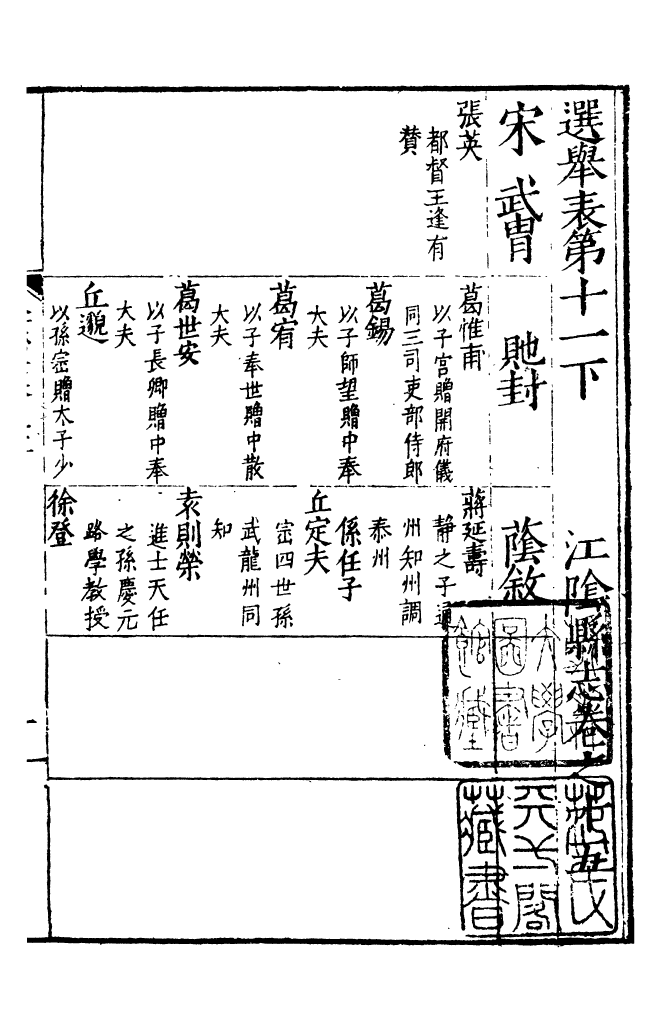 選舉表第十一下 江隂縣志卷之十五
宋 武胄 貤封 蔭敘
張英
都督王逢有
賛
葛惟甫
以子宮贈開府儀
同三司吏部侍郎
葛錫
以子師望贈中奉
大夫
葛宥
以子奉世贈中散
大夫
葛世安
以子長卿贈中奉
大夫
丘邈
以孫崈贈太子少
蔣延壽
静之子通
州知州調
泰州
係任子
丘定夫
崈四世孫
武龍州同
知
袁則榮
進士天任
之孫慶元
路學教授
徐登
大學
圖書
館藏
范氏
天一閣
藏書